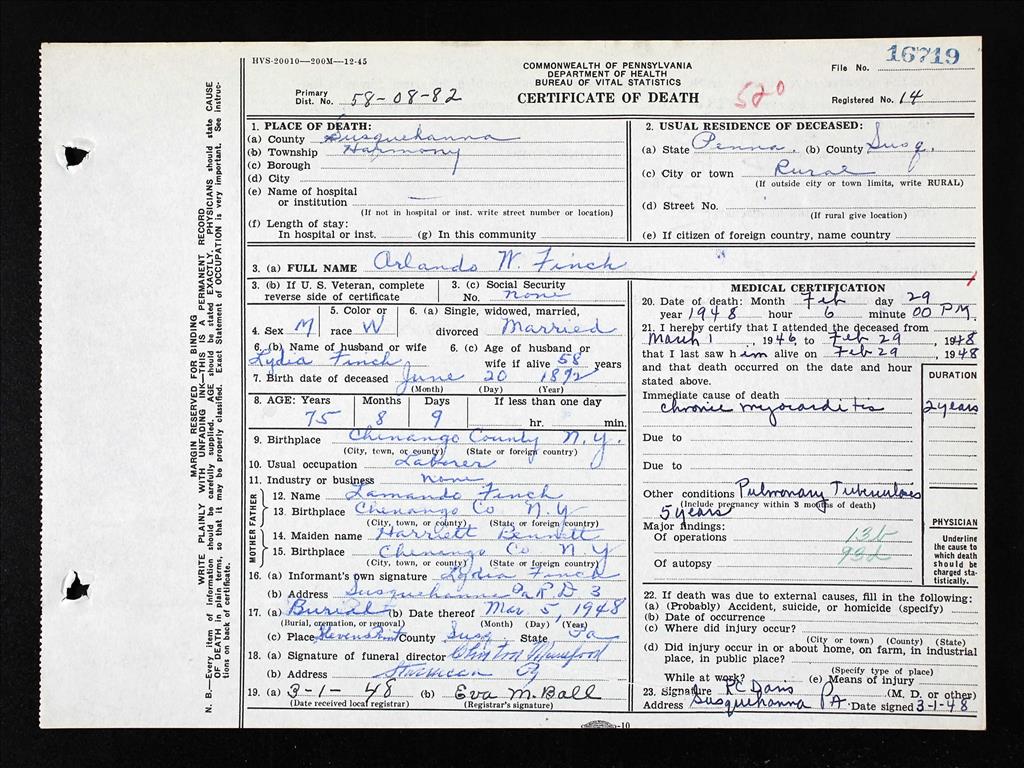 HVS-20010—200M—12-45
COMMONWEALTH OF PENNSYLVANIA
DEPARTMENT OF HEALTH
BUREAU OF VITAL STATISTICS
CERTIFICATE OF DEATH
File No. 16719
Primary Dist. No. 58-08-82
520
Registered No. 14
MARGIN RESERVED FOR BINDING
N. B.—WRITE PLAINLY WITH UNFADING INK—THIS IS A PERMANENT RECORD
Every item of information should be carefully supplied. AGE should be stated EXACTLY. PHYSICIANS should state CAUSE
OF DEATH in plain terms, so that it may be properly classified. Exact Statement of OCCUPATION is very important. See instruc-
tions on back of certificate.
1. PLACE OF DEATH:
(a) County Susquehanna
(b) Township Harmony
(c) Borough
(d) City
(e) Name of hospital
or institution —
(If not in hospital or inst. write street number or location)
(f) Length of stay:
In hospital or inst. (g) In this community
2. USUAL RESIDENCE OF DECEASED:
(a) State Penna. (b) County Susq.
(c) City or town Rural
(If outside city or town limits, write RURAL)
(d) Street No.
(If rural give location)
(e) If citizen of foreign country, name country
3. (a) FULL NAME Orlando W. Finch
3. (b) If U. S. Veteran, complete
reverse side of certificate
3. (c) Social Security
No. none
4. Sex M
5. Color or
race W
6. (a) Single, widowed, married,
divorced Married
6. (b) Name of husband or wife
Lydia Finch
6. (c) Age of husband or
wife if alive 58 years
7. Birth date of deceased June 20 1872
(Month) (Day) (Year)
8. AGE: Years Months Days If less than one day
75 8 9 hr. min.
9. Birthplace Chenango County N.Y.
(City, town, or county) (State or foreign country)
10. Usual occupation Laborer
11. Industry or business none
FATHER
12. Name Lamando Finch
13. Birthplace Chenango Co N.Y
(City, town, or county) (State or foreign country)
MOTHER
14. Maiden name Harriett Bennett
15. Birthplace Chenango Co N.Y
(City, town, or county) (State or foreign country)
16. (a) Informant's own signature Lydia Finch
(b) Address Susquehanna Pa R D 3
17. (a) Burial (b) Date thereof Mar. 5, 1948
(Burial, cremation, or removal) (Month) (Day) (Year)
(c) Place Stevens Point County Susq. State Pa
18. (a) Signature of funeral director
(b) Address
19. (a) 3-1-48 (b) Eva M. Ball
(Date received local registrar) (Registrar's signature)
MEDICAL CERTIFICATION
20. Date of death: Month Feb day 29
year 1948 hour 6 minute 00 P.M.
21. I hereby certify that I attended the deceased from
March 1, 1946, to Feb 29, 1948
that I last saw him alive on Feb 29, 1948
and that death occurred on the date and hour
stated above.
DURATION
Immediate cause of death
chronic myocarditis 2 years
Due to
Due to
Other conditions Pulmonary Tuberculosis
(Include pregnancy within 3 months of death)
5 years
Major findings:
Of operations 13b
93d
Of autopsy
PHYSICIAN
Underline
the cause to
which death
should be
charged sta-
tistically.
22. If death was due to external causes, fill in the following:
(a) (Probably) Accident, suicide, or homicide (specify)
(b) Date of occurrence
(c) Where did injury occur?
(City or town) (County) (State)
(d) Did injury occur in or about home, on farm, in industrial
place, in public place?
(Specify type of place)
While at work? (e) Means of injury
23. Signature R C Davis (M. D. or other)
Address Susquehanna PA. Date signed 3-1-48
-10